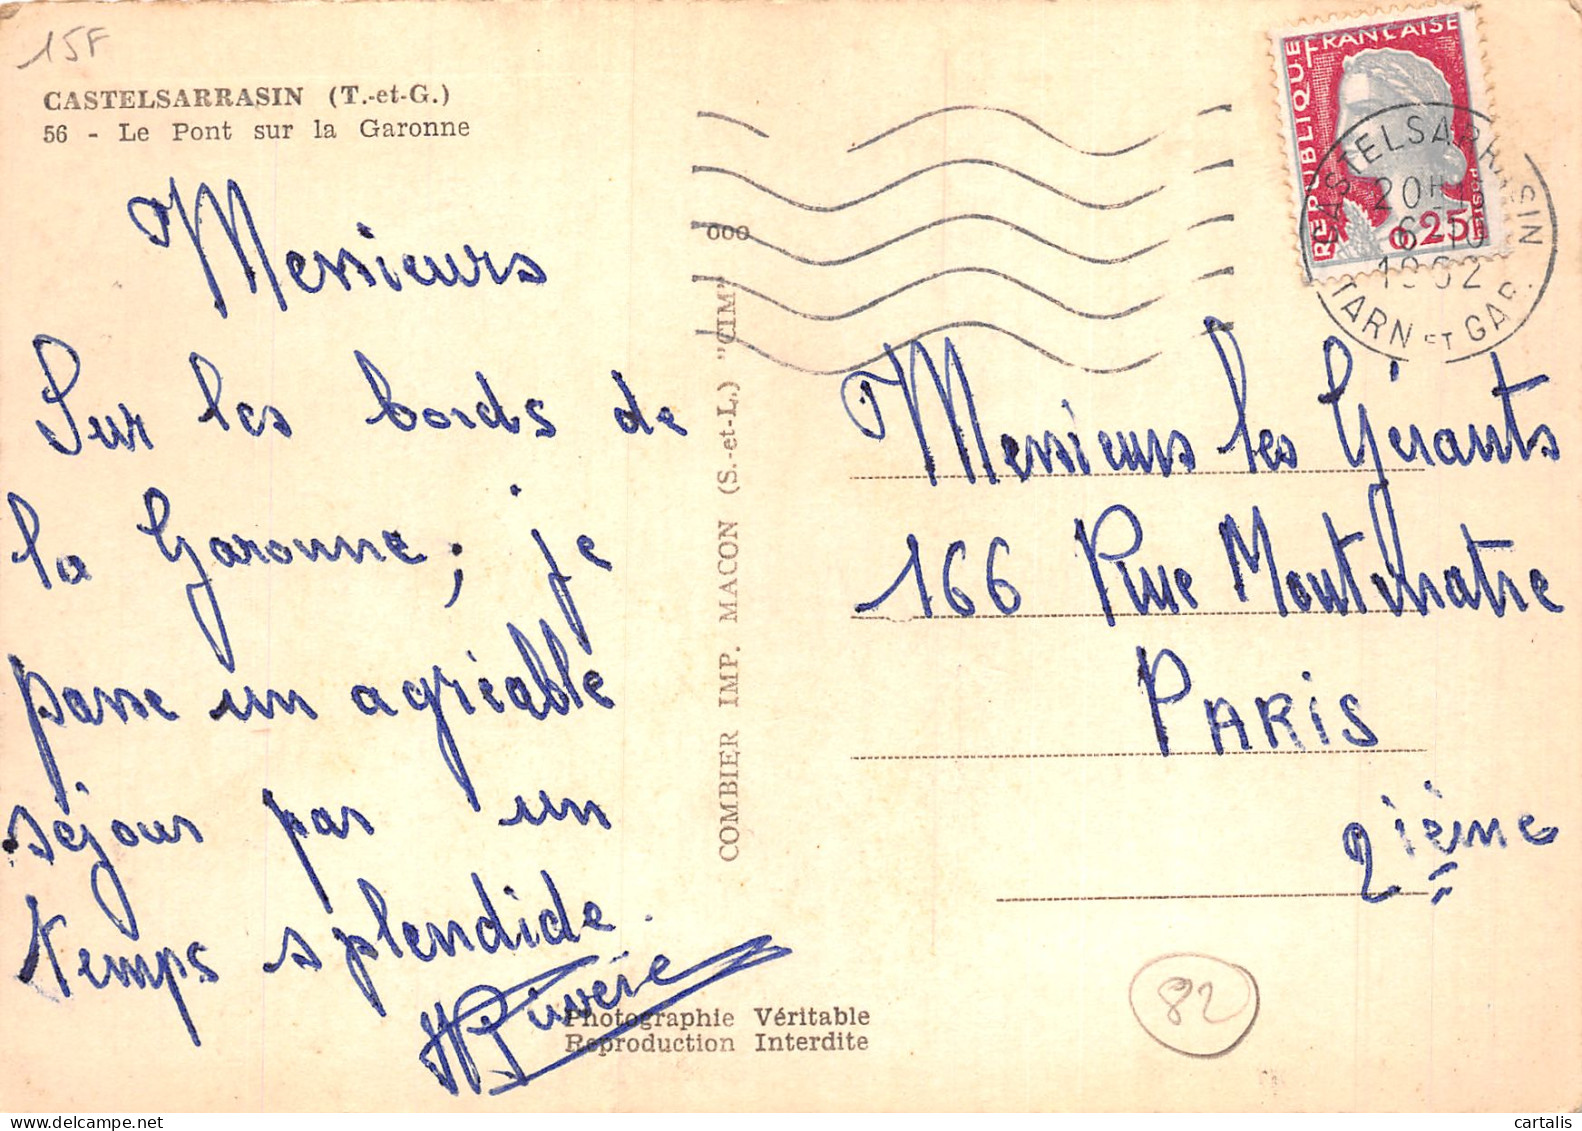 15F
CASTELSARRASIN (T.-et-G.)
56 - Le Pont sur la Garonne
Messieurs
Sur les bords de
la Garonne, je
passe un agréable
séjour par un
temps splendide.
Photographie Véritable
Reproduction Interdite
COMBIER IMP. MACON (S.-et-L.) "CIM"
000
REPUBLIQUE FRANÇAISE
POSTES
0,25
CASTELSARRASIN
20H
6-10
1962
TARN ET GAR.
Messieurs les Gérants
166 Rue Montmatre
PARIS
2ième
82
cartalis